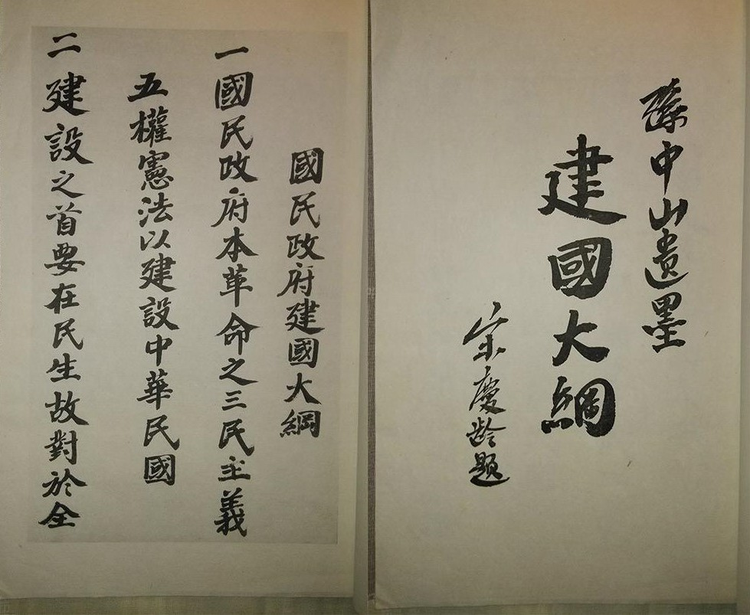 孫中山遺墨
建國大綱
宋慶齡題
國民政府建國大綱
一國民政府本革命之三民主義
五權憲法以建設中華民國
二建設之首要在民生故對於全